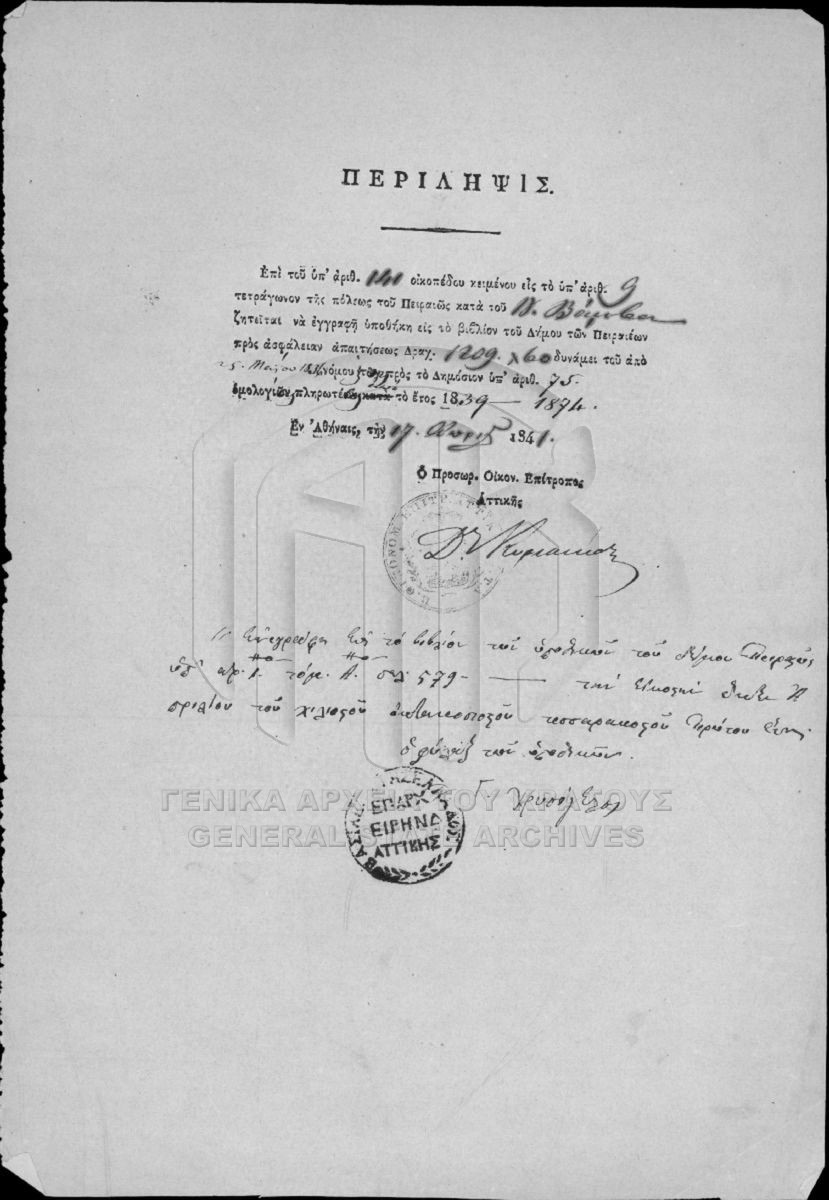 ΠΕΡΙΛΗΨΙΣ.
Επὶ τοῦ ὑπ' ἀριθ. 140 οἰκοπέδου κειμένου εἰς τὸ ὑπ' ἀριθ. 9
τετράγωνον τῆς πόλεως τοῦ Πειραιῶς κατὰ τοῦ Ν. Βάμβα
ζητεῖται νὰ ἐγγραφῇ ὑποθήκη εἰς τὸ βιβλίον τοῦ Δήμου τῶν Πειραιέων
πρὸς ἀσφάλειαν ἀπαιτήσεως Δραχ. 1209. λ 60 δυνάμει τοῦ ἀπὸ
25. Μαΐου νόμου πρὸς τὸ Δημόσιον ὑπ' ἀριθ. 75.
ὁμολογι πληρωτέ κατὰ τὸ ἔτος 1839 — 1874.
Ἐν Ἀθήναις, τὴν 17. Ἀπριλ 1841.
Ὁ Προσωρ. Οἰκον. Ἐπίτροπος
Ἀττικῆς
Δ. Κυριακίδης
Ἐνεγράφη εἰς τὸ βιβλίον τῶν ὑποθηκῶν τοῦ δήμου Πειραιῶς
ὑπ' ἀρ. τόμ. Α. σελ. 579 — τὴν εἰκοστὴν Ἀ
πριλίου τοῦ χιλιοστοῦ ὀκτακοσιοστοῦ τεσσαρακοστοῦ πρώτου ἔτους
ὁ φύλαξ τῶν ὑποθηκῶν.
ΓΕΝΙΚΑ ΑΡΧΕΙΑ ΤΟΥ ΚΡΑΤΟΥΣ
GENERAL STATE ARCHIVES
ΕΠΑΡΧ
ΕΙΡΗΝΟΔ
ΑΤΤΙΚΗΣ